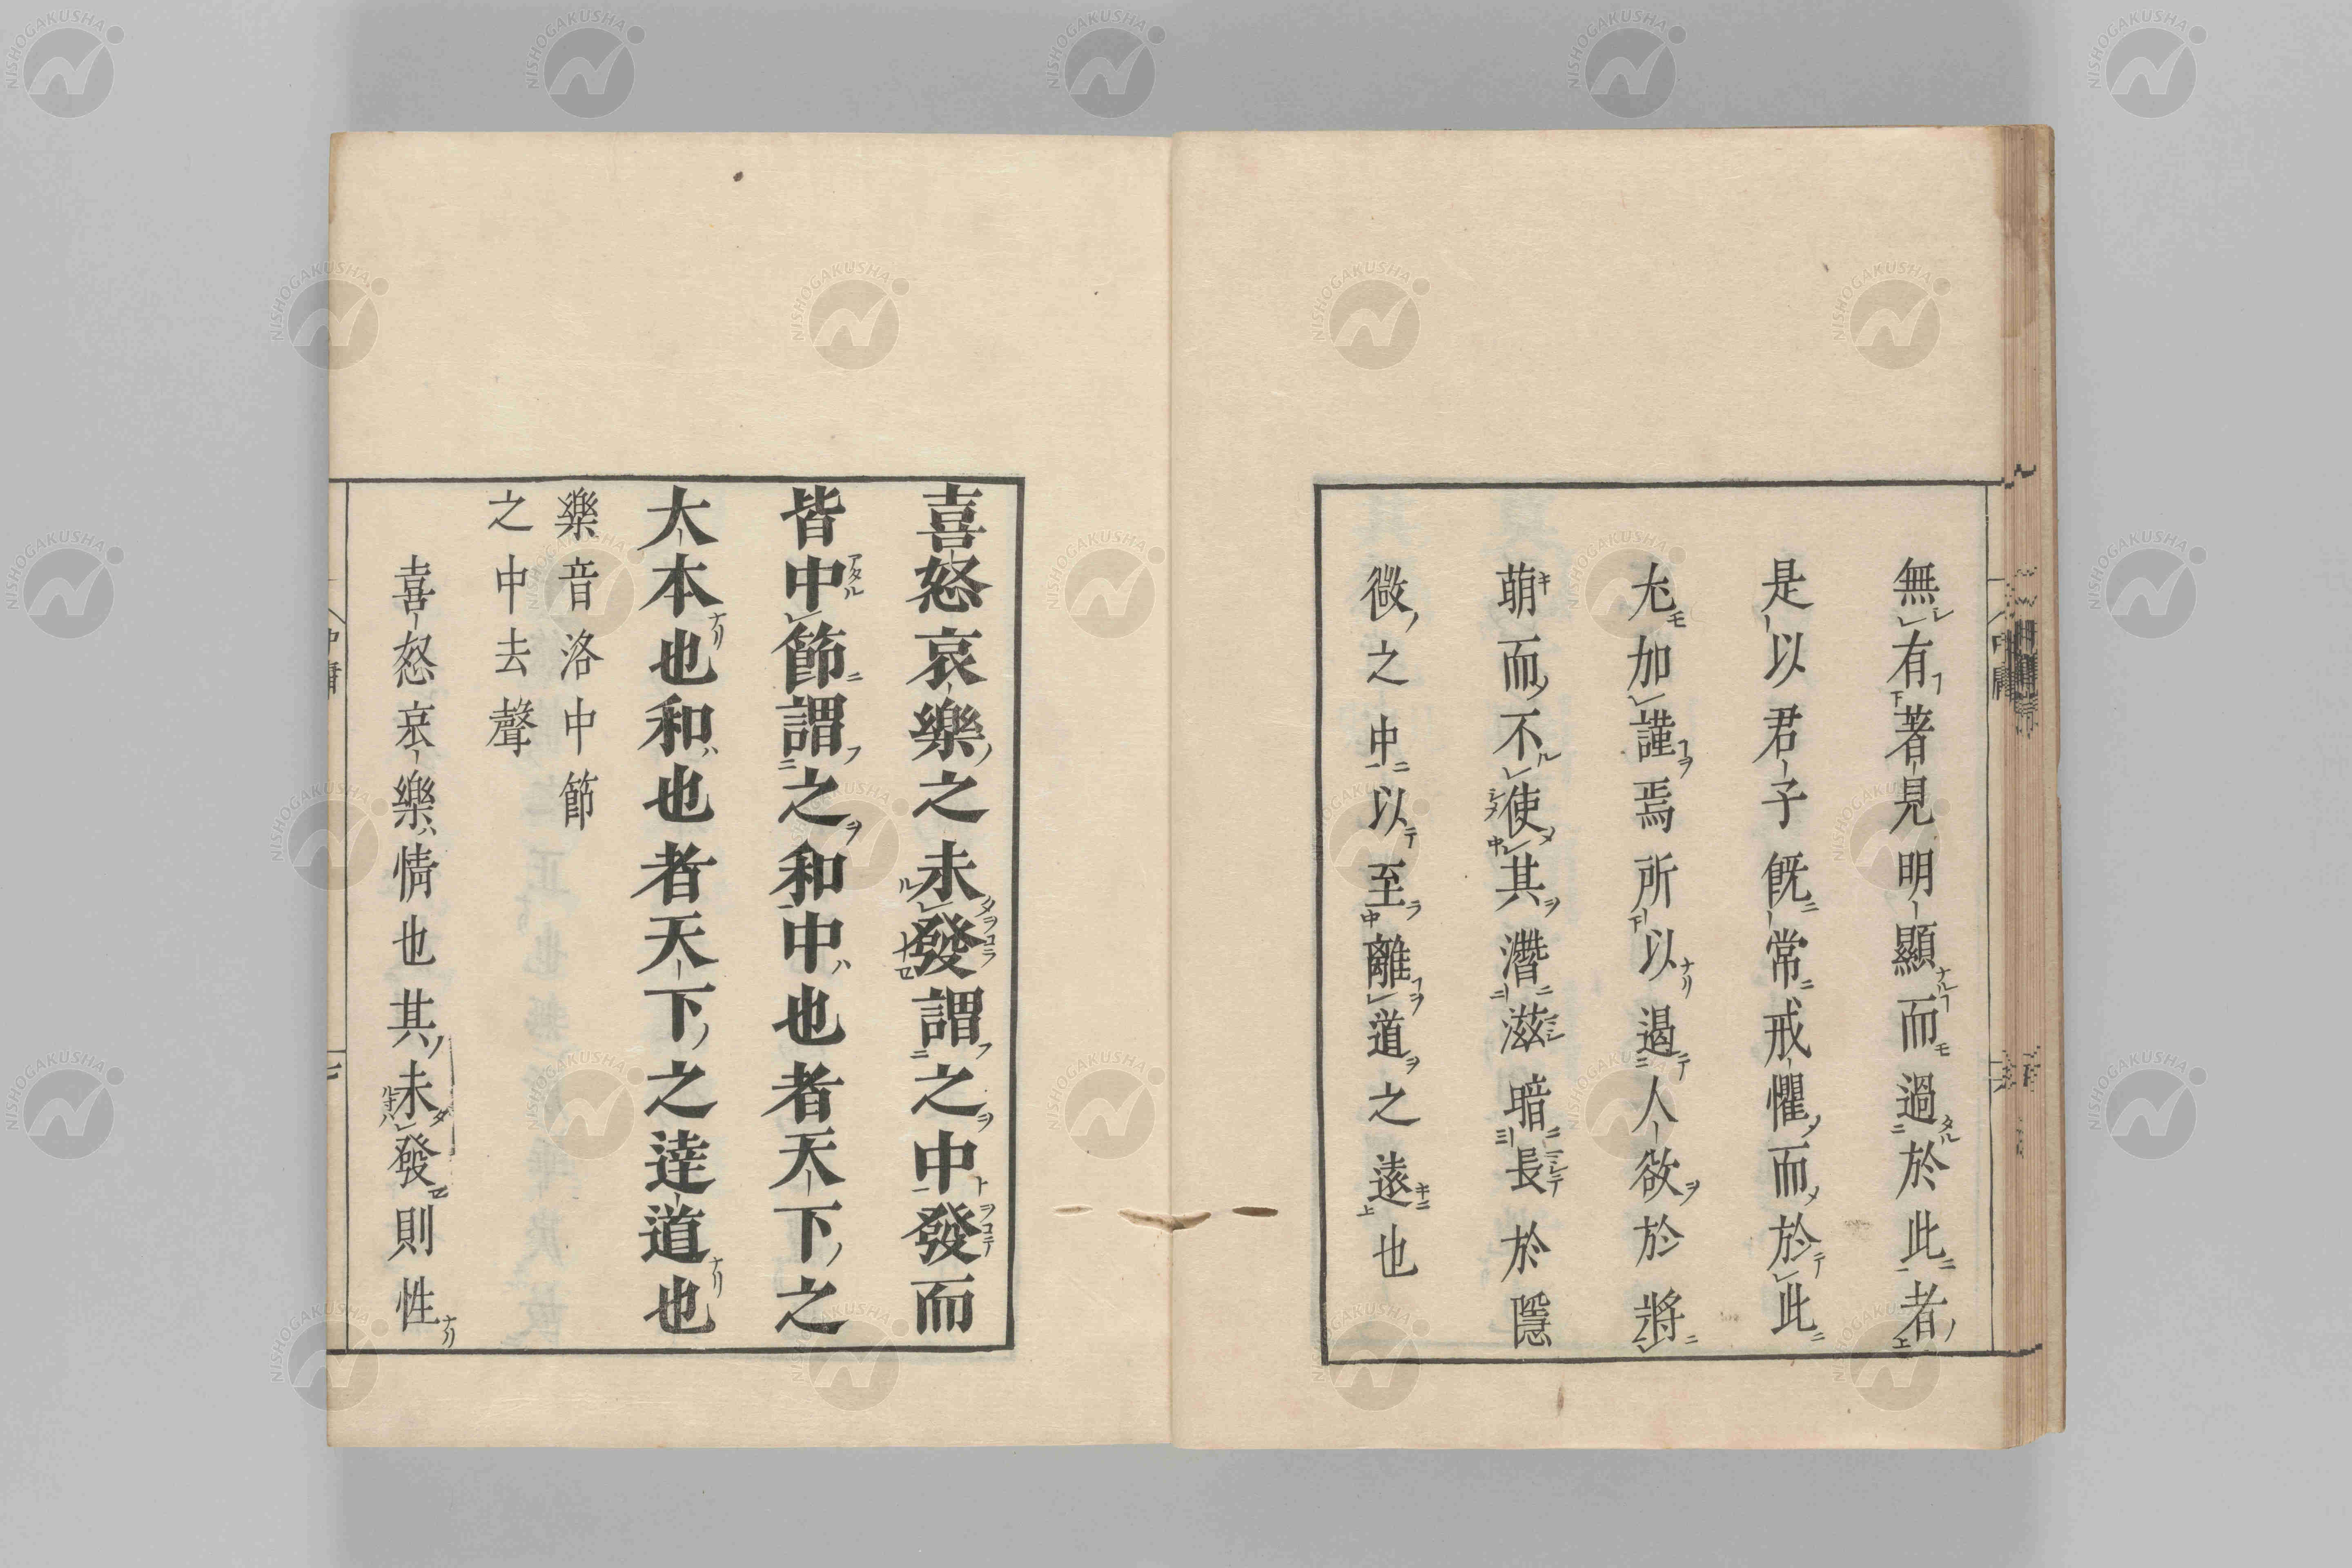 無有著見明顯而過於此者
是以君子既常戒懼而於此
尤加謹焉所以遏人欲於將
萌而不使其潛滋暗長於隱
微之中以至離道之遠也
喜怒哀樂之未發謂之中發而
皆中節謂之和中也者天下之
大本也和也者天下之達道也
樂音洛中節
之中去聲
喜怒哀樂情也其未發則性
中庸
NISHOGAKUSHA